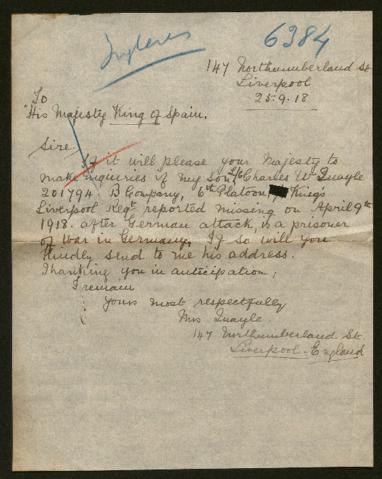 Ingleses
6384
147 Northumberland St
Liverpool
25.9.18
To
His Majesty King of Spain.
Sire
If it will please your Majesty to
make inquiries if my Son L/C Charles W Quayle
201794. B Company, 6th Platoon King's
Liverpool Regt reported missing on April 9th
1918. after German attack, is a prisoner
of War in Germany, If so will you
kindly send to me his address.
Thanking you in anticipation,
I remain
Yours most respectfully
Mrs Quayle
147 Northumberland St.
Liverpool - England